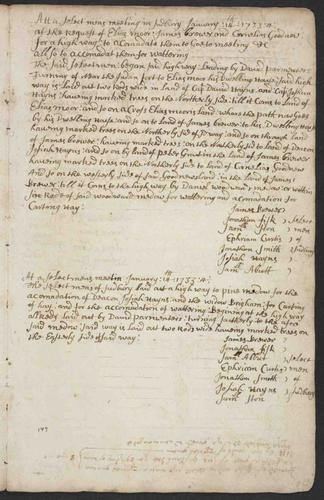 Att a select mens meeting in Sudbury January: 14: 1733/4:
at the Request of Elias moor: James brewer and Cornelius Goodnow
for a high way: to acomadate them to Goe to meeting &c
allso to accomadat them for wattering
The said selectmen: began said highway: Leading by David parmenters
Turning of near the Indan to Elias moor his Dwelling House: said high
way is laid out two Rods wide in land of Capt David Hayns: and Capt Josiah
Hayns: haveing marked trees on the Northerly side: till it Com to land of
Elias moor: and so on a Cross Elias moors land: whear the path now goes
by his Dwelling house and so on to land of James brewer to his Dwelling House
haveing marked trees on the Northerly side of said way: and so on through land
of James brewer: haveing marked trees: on the Northerly side to land of Deacon
Josiah Hayns: and so on by land of peter in the land of James brewer
haveing marked trees on the Northerly side to land of Cornelius Goodnow
And so on the westerly side of said Goodnows land: in the land of James
Brewer: till it Com to the high way by Daniel woodward medow: or within
Rods of said woodward medow for wattering an acomadation for
Carting hay:
James Brewer
Jonathan fisk } select
Sam Ston } men
Ephraim Curtis } of
Jonathan Smith } Sudbury
Josiah Hayns
Sam Abutt
At a selectmens meetin January: 14th 1733/4:
The select mens of Sudbury laid out a high way to pine medow for the
acomadation of Deacon Josiah Hayns: and the widow Brigham: for Carting
of hay: and for the accomodation of wattering Begining at the high way
allredy laid out by David parmenters: turning southerly to the afore
said medow: said way is land out two Rods wide haveing marked trees on
the Easterly side of said way:
James Brewer
Jonathan fisk
Sam Abbut } select
Ephraim Curtis } men
Jonathan Smith } of
Josiah Hayns } Sudbury
Sam Ston